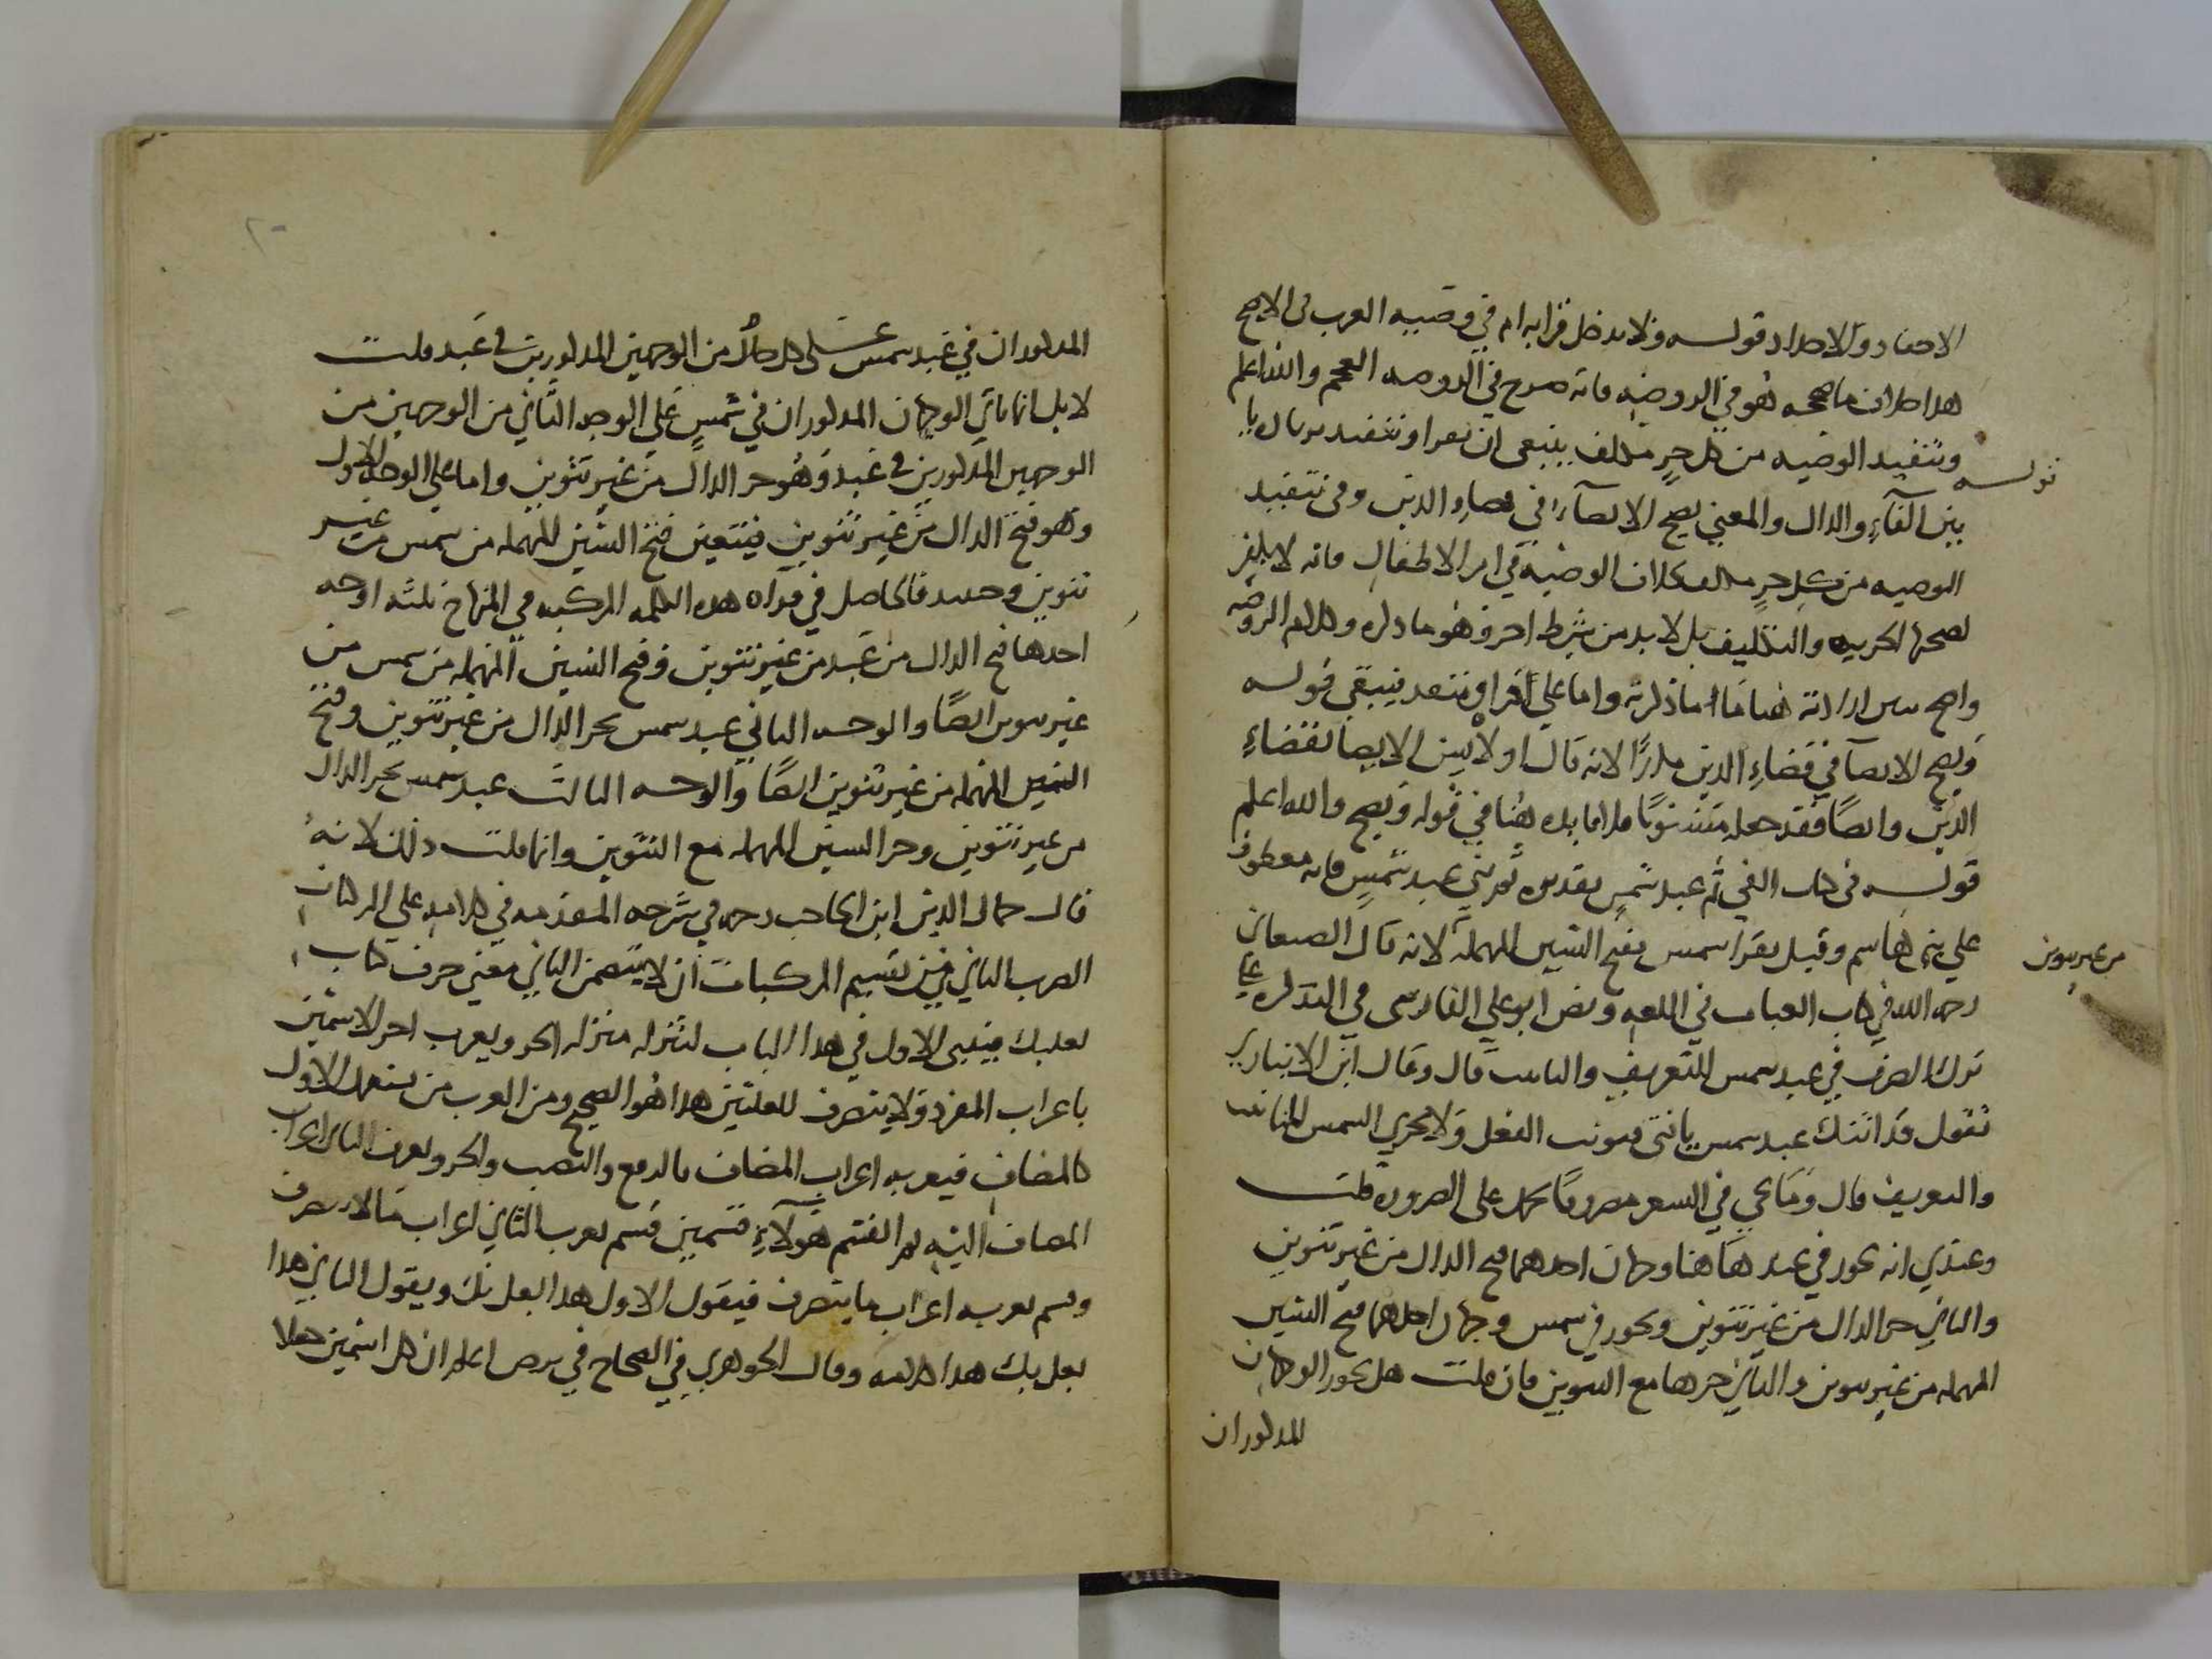 الاحفاد والاجداد قوله ولا يدخل قرابه ام في وصيه العرب في الاصح
هذا خلاف ما صححه هو في الروضه فانه صرح في الروضه العجم والله اعلم
قوله وتنفيذ الوصيه من كل حر مكلف ينبغي ان يقرا وتنفيذ بزياده يا
بين الفآء والذال والمعني يصح الايصآء في قضاء الدين وفي تنفيذ
الوصيه من كل حر مكلف كلان الوصيه في امر الاطفال فانه لا يكفي
لصحتها الحريه والتكليف بل لا بد من شرط اخر وهو ما ذكره وكلام الروضه
واضح ارادته هنا ما ذكرته واما علي اقراء وتنفذ فيبقي قوله
ويصح الايصآ في قضاء الدين مكررا لانه قال اولا يسن الايصا بقضاء
الدين وايضا فقد جعله مسنونا فلا فايده هنا في قوله ويصح والله اعلم
قوله في كتاب الفي ثم عبد شمس تقديره ثم بني عبد شمس فانه معطوف
علي بني هاشم وقيل يقرا سمس بفتح السين المهمله من غير تنوين لانه قال الصغاني
رحمه الله في كتاب العباب في اللغه ونص ابو علي الفارسي في التذكره علي
ترك الصرف في عبد سمس للتعريف والتانيث قال وقال ابن الانباري
تقول قد اتتك عبد سمس يا فتى فتونث الفعل ولا تجري السمس للتانيث
والتعريف قال وما يجي في الشعر مصروفا يحمل على الضروره قلت
وعندي انه يجوز في عبد هاهنا وجهان احدهما فتح الدال من غير تنوين
والثاني جر الدال من غير تنوين ويجوز في سمس وجهان احدهما فتح السين
المهمله من غير تنوين والثاني جرها مع التنوين فان قلت هل يجوز الوجهان
المذكوران
المذكوران في عبد سمس على كل من الوجهين المذكورين في عبد قلت
لا بل انما ياتي الوجهان المذكوران في شمس علي الوجه الثاني من الوجهين من
الوجهين المذكورين في عبد وهو جر الدال من غير تنوين واما علي الوجه الاول
وهو فتح الدال من غير تنوين فيتعين فتح السين المهمله من سمس من غير
تنوين وحينئذ فالحاصل في قراه هذه الكلمه المركبه في المنهاج ثلثه اوجه
احدها فتح الدال من عبد من غير تنوين وفتح السين المهمله من سمس من
غير تنوين ايضا والوجه الثاني عبد سمس بجر الدال من غير تنوين وفتح
السين المهمله من غير تنوين ايضا والوجه الثالث عبد سمس بجر الدال
من غير تنوين وجر السين المهمله مع التنوين وانما قلت ذلك لانه
قال جمال الدين ابن الحاجب رحمه في شرحه المقدمه في كلامه علي المركبات
الضرب الثاني من تقسيم المركبات ان لا يتضمن الثاني معني حرف كباب
بعلبك فيبني الاول في هذا الباب لتنزله منزله الجزو ويعرب اخر الاسمين
باعراب المفرد ولا ينصرف للعلتين هذا هو الصحيح ومن العرب من يستعمل الاول
كالمضاف فيعربه اعراب المضاف بالرفع والنصب والجر ويعرب الثاني اعراب
المضاف اليه ثم انقسم هولآء قسمين قسم يعرب الثاني اعراب ما لا ينصرف
وقسم يعربه اعراب ما ينصرف فيقول الاول هذا بعلبك ويقول الثاني هذا
بعلبك هذا كلامه وقال الجوهري في الصحاح في برص اعلم ان كل اسمين جعلا